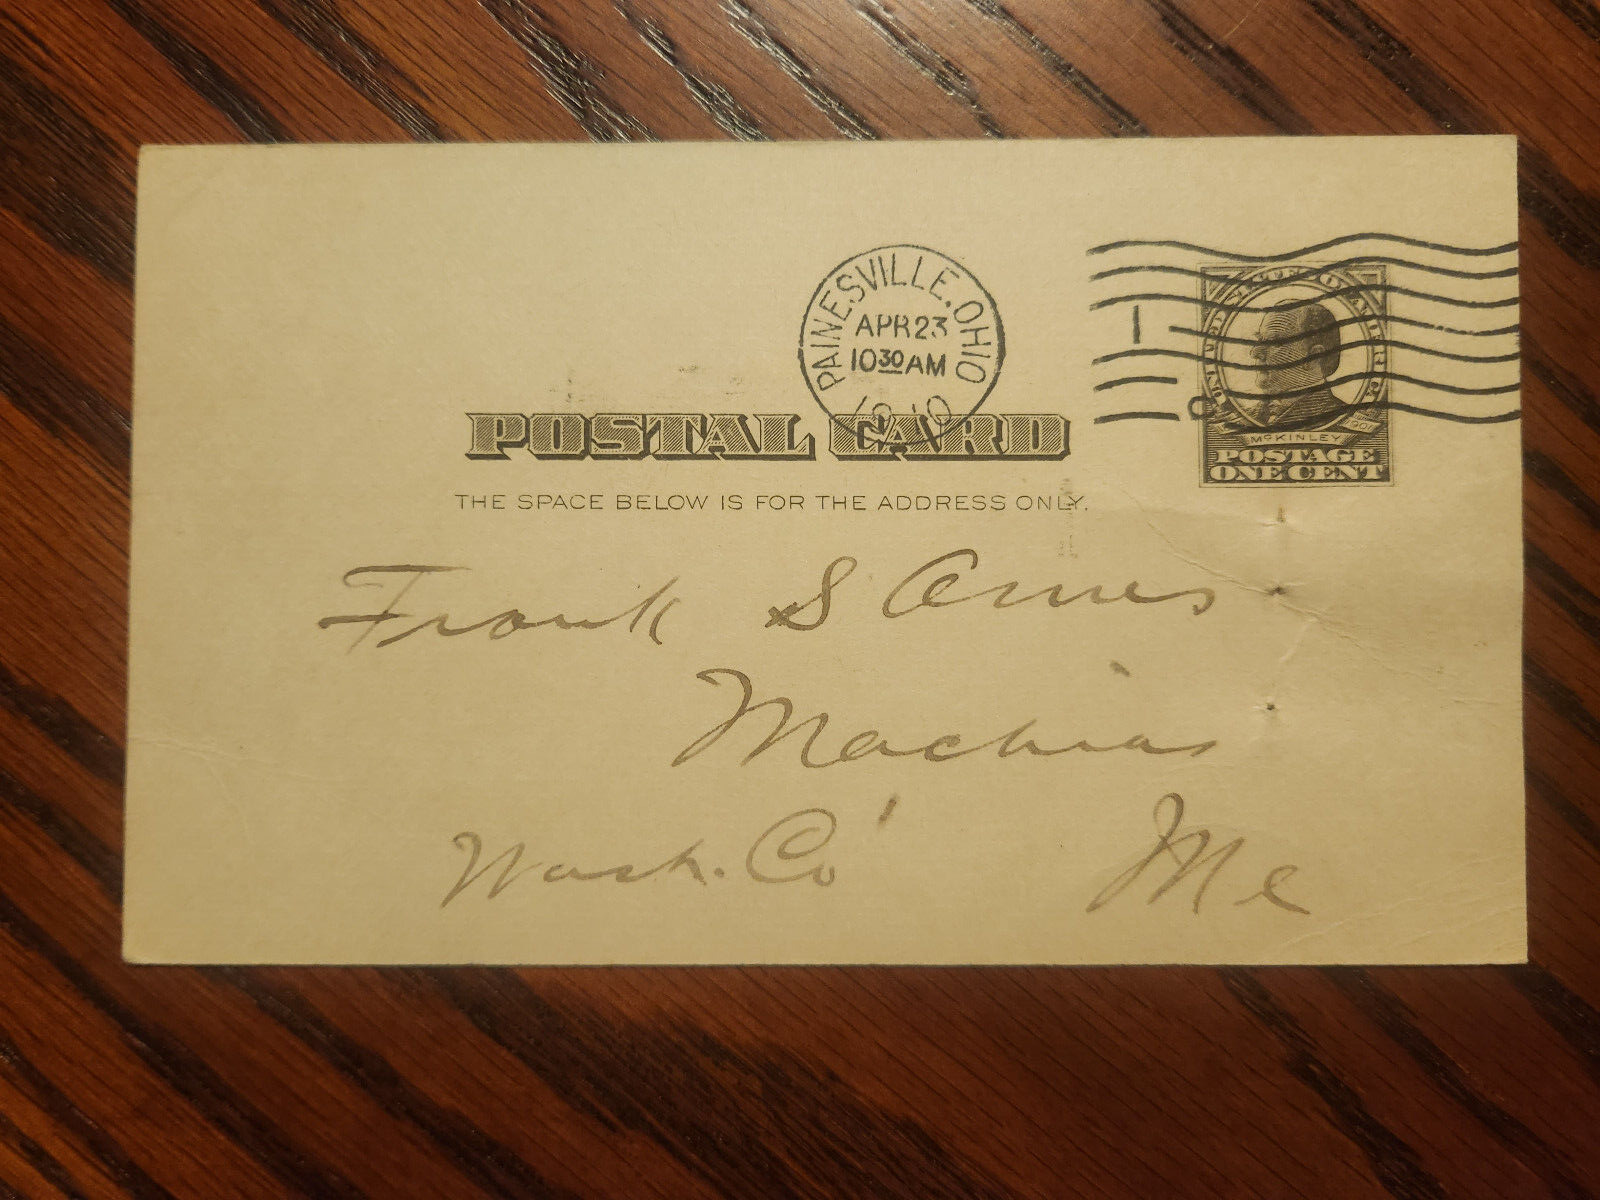 PAINESVILLE, OHIO
APR 23
10 30 AM
1910
1
McKINLEY
1901
POSTAGE
ONE CENT
POSTAL CARD
THE SPACE BELOW IS FOR THE ADDRESS ONLY.
Frank S Ames
Machias
Wash. Co
Me